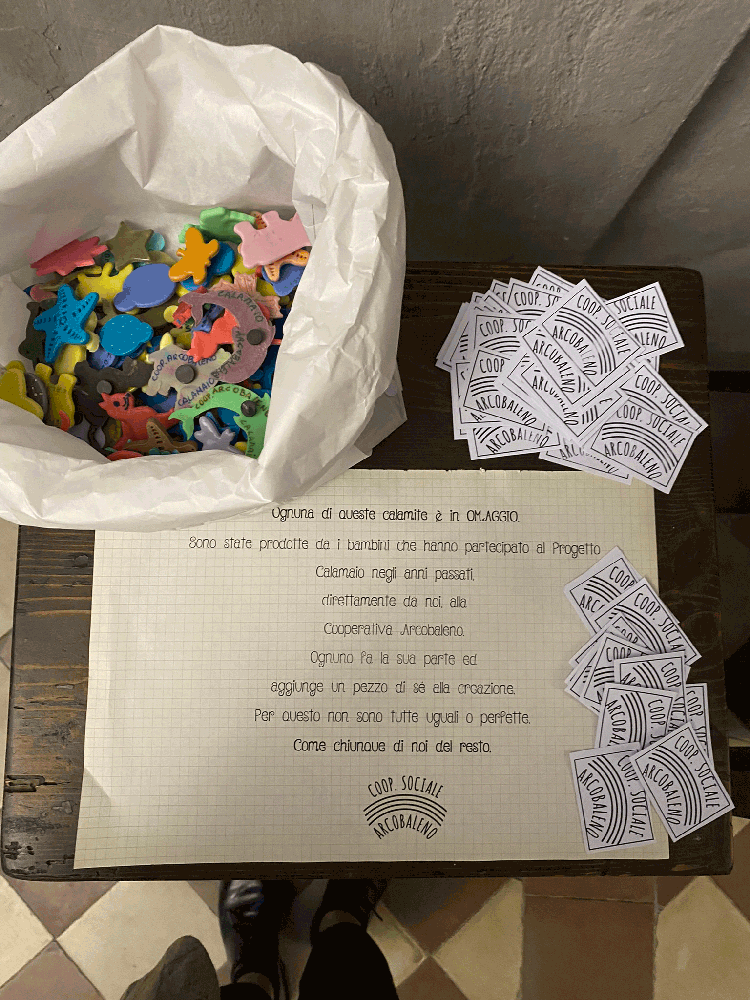 Ognuna di queste calamite è in OMAGGIO.
Sono state prodotte da i bambini che hanno partecipato al Progetto
Calamaio negli anni passati,
direttamente da noi, alla
Cooperativa Arcobaleno.
Ognuno fa la sua parte ed
aggiunge un pezzo di sé alla creazione.
Per questo non sono tutte uguali o perfette.
Come chiunque di noi del resto.
COOP. SOCIALE
ARCOBALENO
CALAMAIO
COOP. ARCOBALENO
CALAMAIO
COOP ARCOBALENO
COOP. SOCIALE
ARCOBALENO
COOP. SOCIALE
ARCOBALENO
COOP. SOCIALE
ARCOBALENO
COOP. SOCIALE
ARCOBALENO